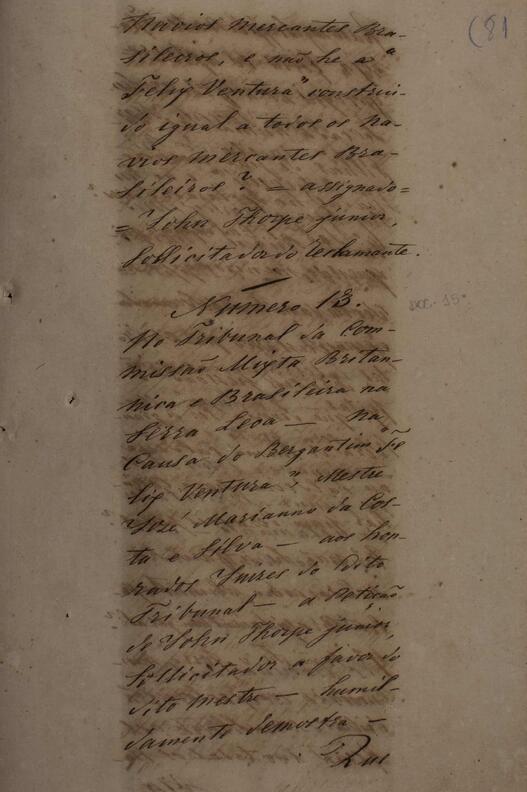 (81
Navios mercantes Bra-
sileiros, e não he a "
Felix Ventura" construi-
do igual a todos os na-
vios mercantes Bra-
sileiros? = assignado =
= John Thorpe junior,
Sollicitador do Reclamante.
Numero 13.
DOC. 15
No Tribunal da Com-
missão Mixta Britan-
nica e Brasileira na
Serra Leoa — na
Causa do Bergantim "Fe
lix Ventura", Mestre
José Marianno da Cos-
ta e Silva — aos hon-
rados Juizes do dito
Tribunal — a Petição
de John Thorpe junior,
Sollicitador a favor do
dito mestre — humil-
damente demostra —
Que